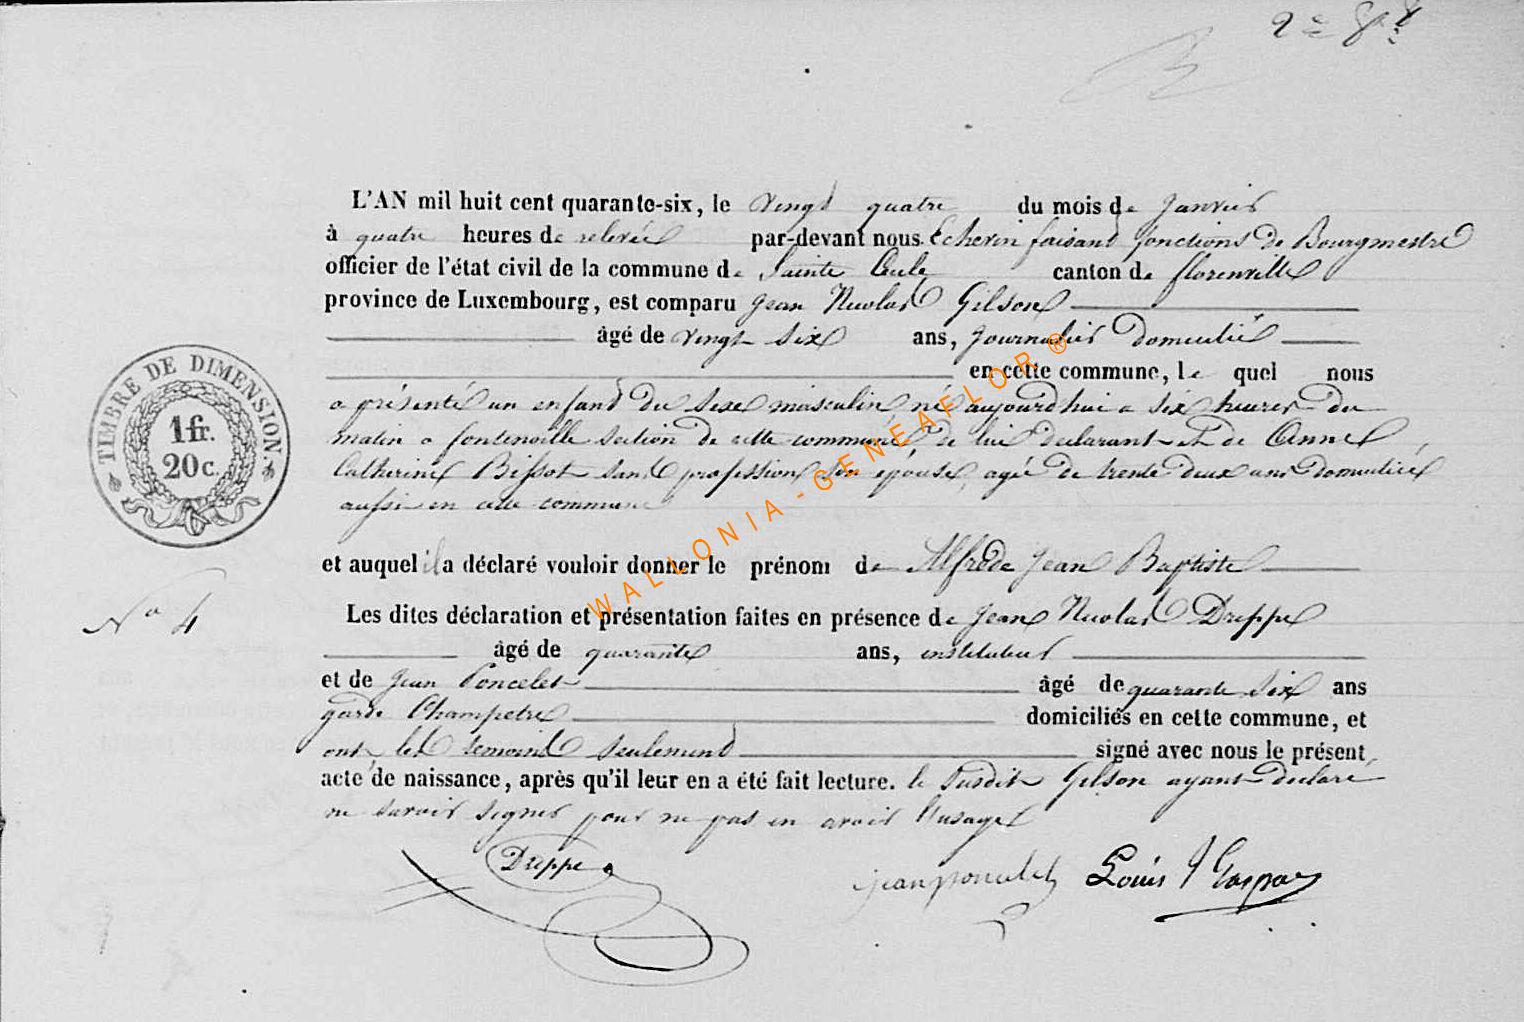 2e
L'AN mil huit cent quarante-six, le vingt quatre du mois de Janvier
à quatre heures de relevée par-devant nous Echevin faisant fonctions de Bourgmestre
officier de l'état civil de la commune de Sainte Cecile canton de florenville
province de Luxembourg, est comparu Jean Nicolas Gilson
âgé de vingt six ans, Journalier domicilié
en cette commune, le quel nous
a présenté un enfant du sexe masculin né aujourd'hui a six heures du
matin a fontenoille section de cette commune de lui declarant et de Anne
Catherine Bissot sans profession son épouse, agée de trente deux ans domiciliée
aussi en cette commune
et auquel il a déclaré vouloir donner le prénom de Alfrede Jean Baptiste
Les dites déclaration et présentation faites en présence de Jean Nicolas Dreppe
âgé de quarante ans, instituteur
et de Jean Poncelet âgé de quarante six ans
garde Champetre domiciliés en cette commune, et
ont les temoins seulement signé avec nous le présent
acte de naissance, après qu'il leur en a été fait lecture. le susdit Gilson ayant declaré
ne savoir signer pour ne pas en avoir l'usage
Dreppe jean poncelet Louis J Gaspar
TIMBRE DE DIMENSION.
1 fr.
20 c.
No 4
WALLONIA-GENEAFLOR®